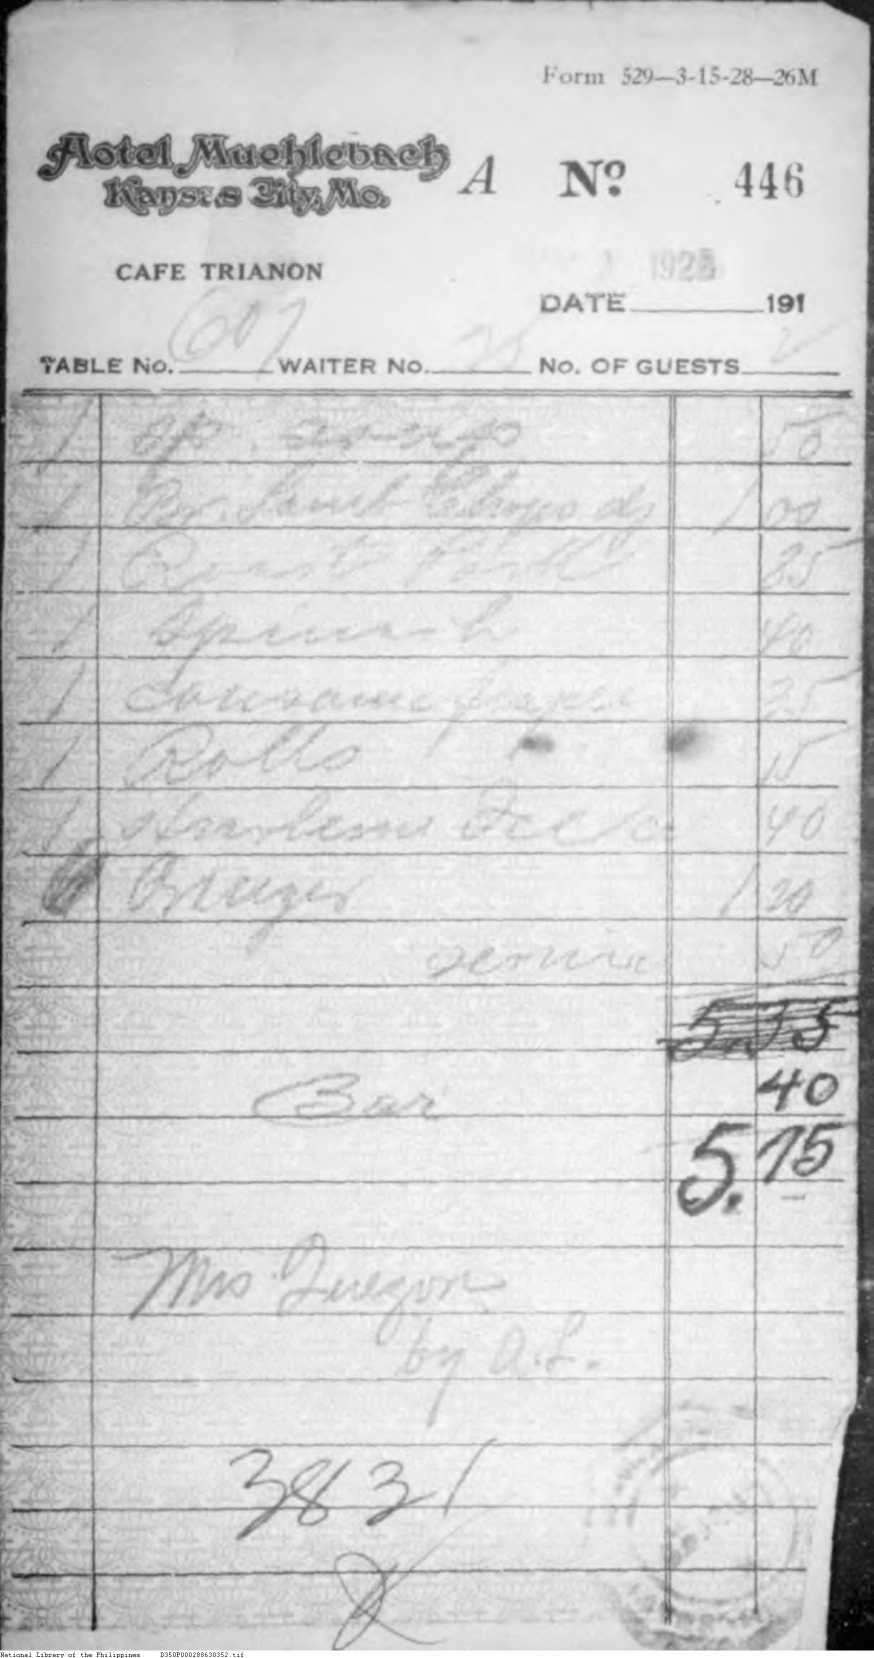 Form 529—3-15-28—26M
Hotel Muehlebach
Kansas City, Mo.
A No. 446
CAFE TRIANON
1928
DATE 191
TABLE No. 607 WAITER No. 25 No. OF GUESTS 2
1 50
1 Br. Lamb Chops 1 00
1 Roast 25
1 Spinach 40
1 25
1 Rolls 15
1 40
1 20
service 50
5.35
Bar 40
5.75
Mrs.
by A.L.
3831
National Library of the Philippines D350P000288630352.tif